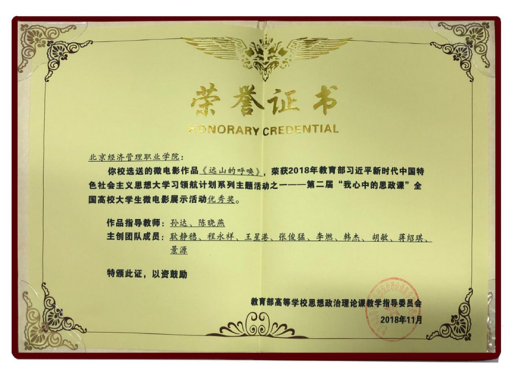 荣誉证书
HONORARY CREDENTIAL
北京经济管理职业学院：
你校选送的微电影作品《远山的呼唤》，荣获2018年教育部习近平新时代中国特
色社会主义思想大学习领航计划系列主题活动之一——第二届“我心中的思政课”全
国高校大学生微电影展示活动优秀奖。
作品指导教师：孙达、陈晓燕
主创团队成员：耿静穗、程永祥、王星港、张俊猛、李燃、韩杰、胡敏、蒋绍琪、
景源
特颁此证，以资鼓励
教育部高等学校思想政治理论课教学指导委员会
2018年11月